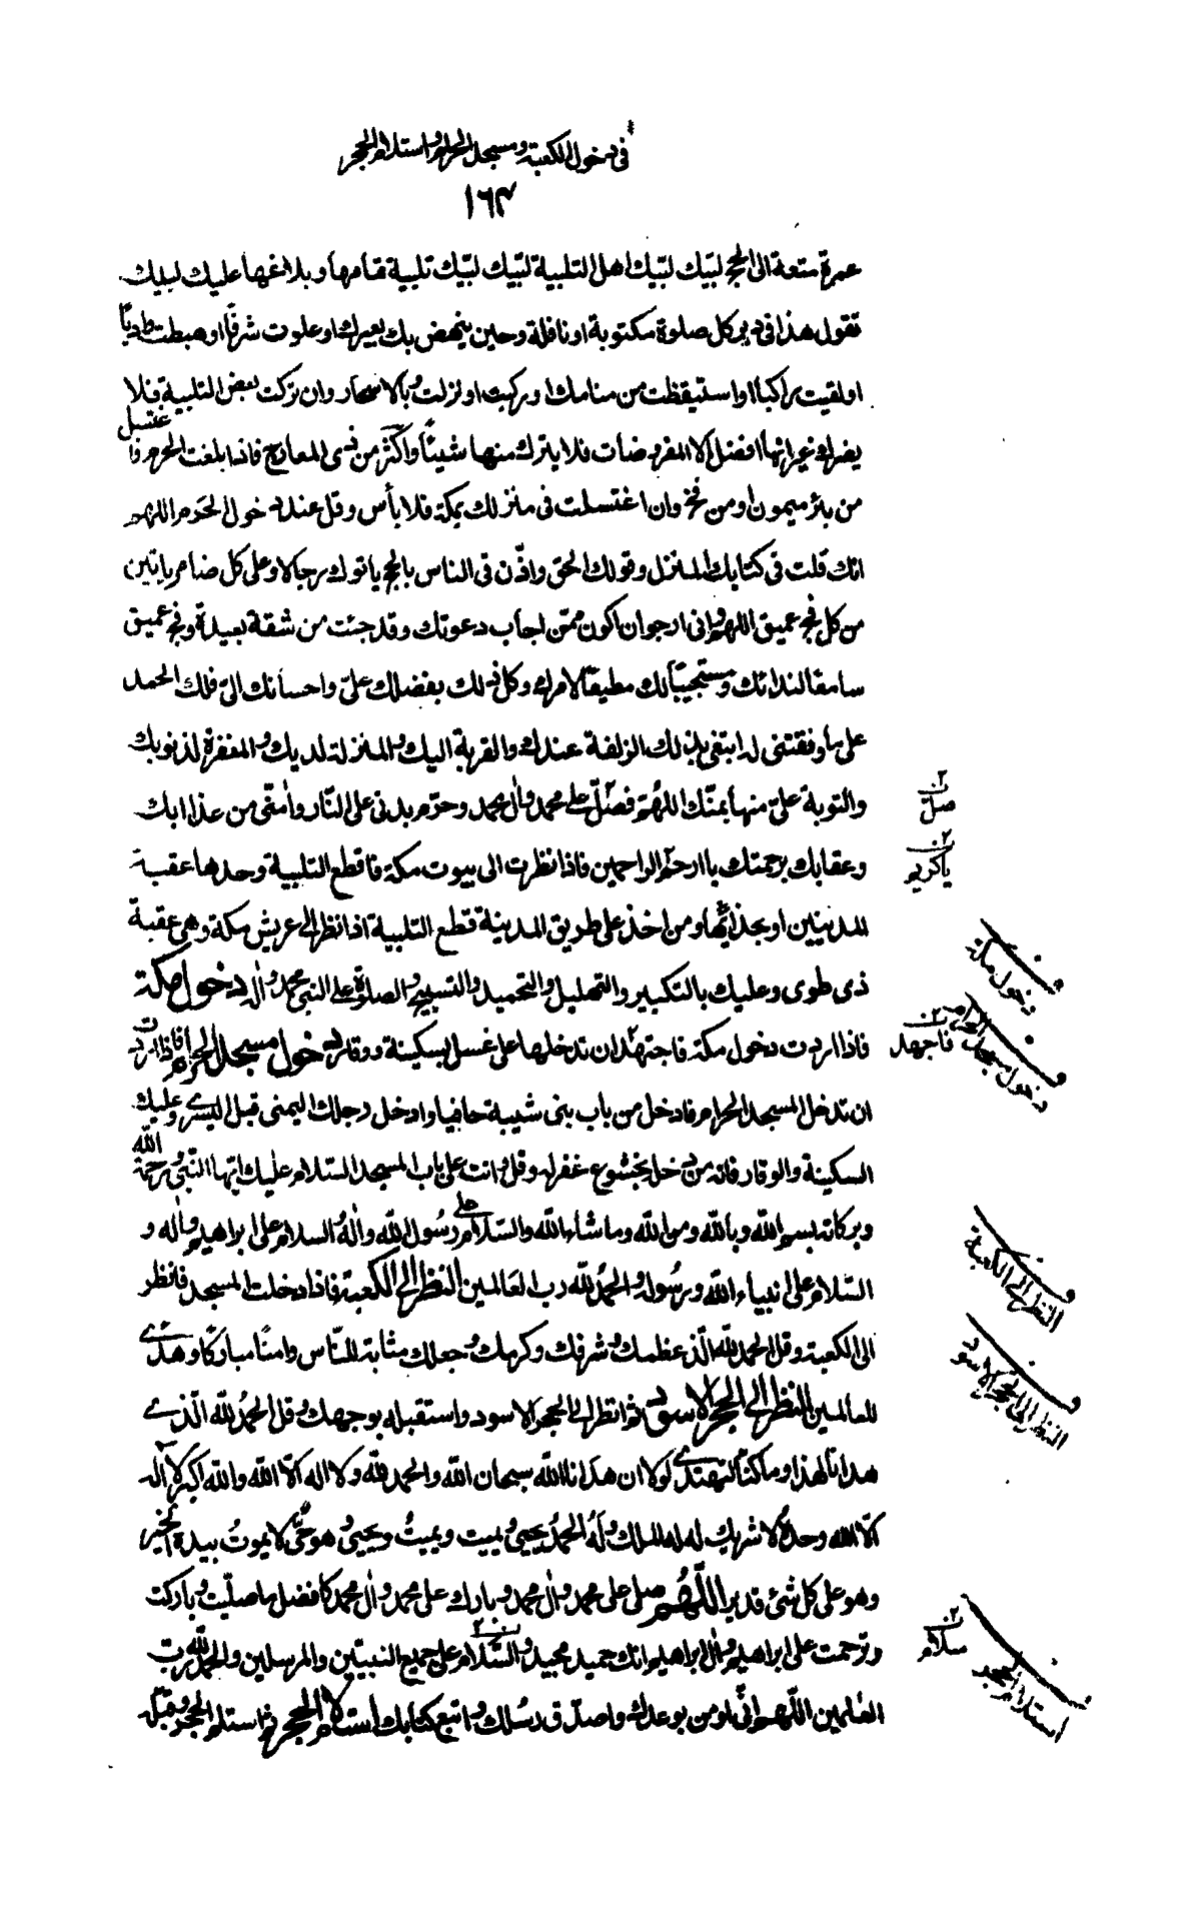 في دخول الكعبة ومسجد الحرام واستلام الحجر
١٦٣
عمرة متعة الى الحج لبّيك لبّيك اهل التلبية لبّيك لبّيك تلبية تمامها وبلاغها عليك لبيك
تقول هذا في دبر كل صلوة مكتوبة او نافلة وحين ينهض بك بعيرك او علوت شرفًا او هبطت واديًا
او لقيت راكبًا او استيقظت من منامك او ركبت او نزلت وبالاسحار وان تركت بعض التلبية فلا
يضرك غير انها افضل الا المفروضات فلا يترك منها شيئًا واكثر من ذي المعارج فاذا بلغت الحرم فاغتسل
من بئر ميمون او من فخ وان اغتسلت في منزلك بمكة فلا بأس وقل عند دخول الحرم اللهم
انك قلت في كتابك المنزل وقولك الحق واذّن في الناس بالحج ياتوك رجالا وعلى كل ضامر ياتين
من كل فج عميق اللهم واني ارجو ان اكون ممن اجاب دعوتك وقد جئت من شقة بعيدة وفج عميق
سامعًا لندائك ومستجيبًا لك مطيعًا لامرك وكل ذلك بفضلك علىّ واحسانك الىّ فلك الحمد
على ما وفقتني له ابتغي بذلك الزلفة عندك والقربة اليك والمنزلة لديك والمغفرة لذنوبك
والتوبة علىّ منها بمنّك اللهم فصلّ على محمد وال محمد وحرّم بدني على النّار وامنّى من عذابك
صلّ
وعقابك برحمتك يا ارحم الراحمين فاذا نظرت الى بيوت مكة فاقطع التلبية وحدها عقبة
يا كريم
المدنيين او بحذائها ومن اخذ على طريق المدينة قطع التلبية اذا نظر الى عريش مكة وهي عقبة
ذي طوى وعليك بالتكبير والتهليل والتحميد والتسبيح والصلوة على النبي محمد واله دخول مكة
دخول مكة
فاذا اردت دخول مكة فاجتهد ان تدخلها على غسل بسكينة ووقار دخول مسجد الحرام فاذا اردت
فاجهد
دخول مسجد الحرام
ان تدخل المسجد الحرام فادخل من باب بني شيبة حافيا وادخل رجلك اليمنى قبل اليسرى وعليك
السكينة والوقار فانه من دخله بخشوع غفر له وقل وانت على باب المسجد السّلام عليك ايّها النّبي ورحمة الله
وبركاته بسم الله وبالله ومن الله وما شاء الله والسّلام على رسول الله واله والسلام على ابراهيم واله و
السّلام على انبياء الله ورسوله والحمد لله رب العالمين النظر الى الكعبة فاذا دخلت المسجد فانظر
النظر الى الكعبة
الى الكعبة وقل الحمد لله الّذي عظمك وشرفك وكرمك وجعلك مثابة للنّاس وامنًا مباركًا وهدى
للعالمين النظر الى الحجر الاسود ثم انظر الى الحجر الاسود واستقبله بوجهك وقل الحمد لله الّذي
النظر الى الحجر الاسود
هدانا لهذا وما كنّا لنهتدي لولا ان هدانا الله سبحان الله والحمد لله ولا اله الّا الله والله اكبر لا اله
الّا الله وحده لا شريك له له الملك وله الحمد يحيي ويميت ويميت ويحيي وهو حيّ لا يموت بيده الخير
وهو على كل شئ قدير اللّهم صل على محمد وال محمد وبارك على محمد وال محمد كافضل ما صلّيت وباركت
وترحمت على ابراهيم وال ابراهيم انك حميد مجيد والسّلام على جميع النبيّين والمرسلين والحمد لله رب
سلام
العلمين اللّهم انّي اومن بوعدك واصدّق رسلك واتبع كتابك استلام الحجر ثم استلم الحجر وقبّله
استلام الحجر